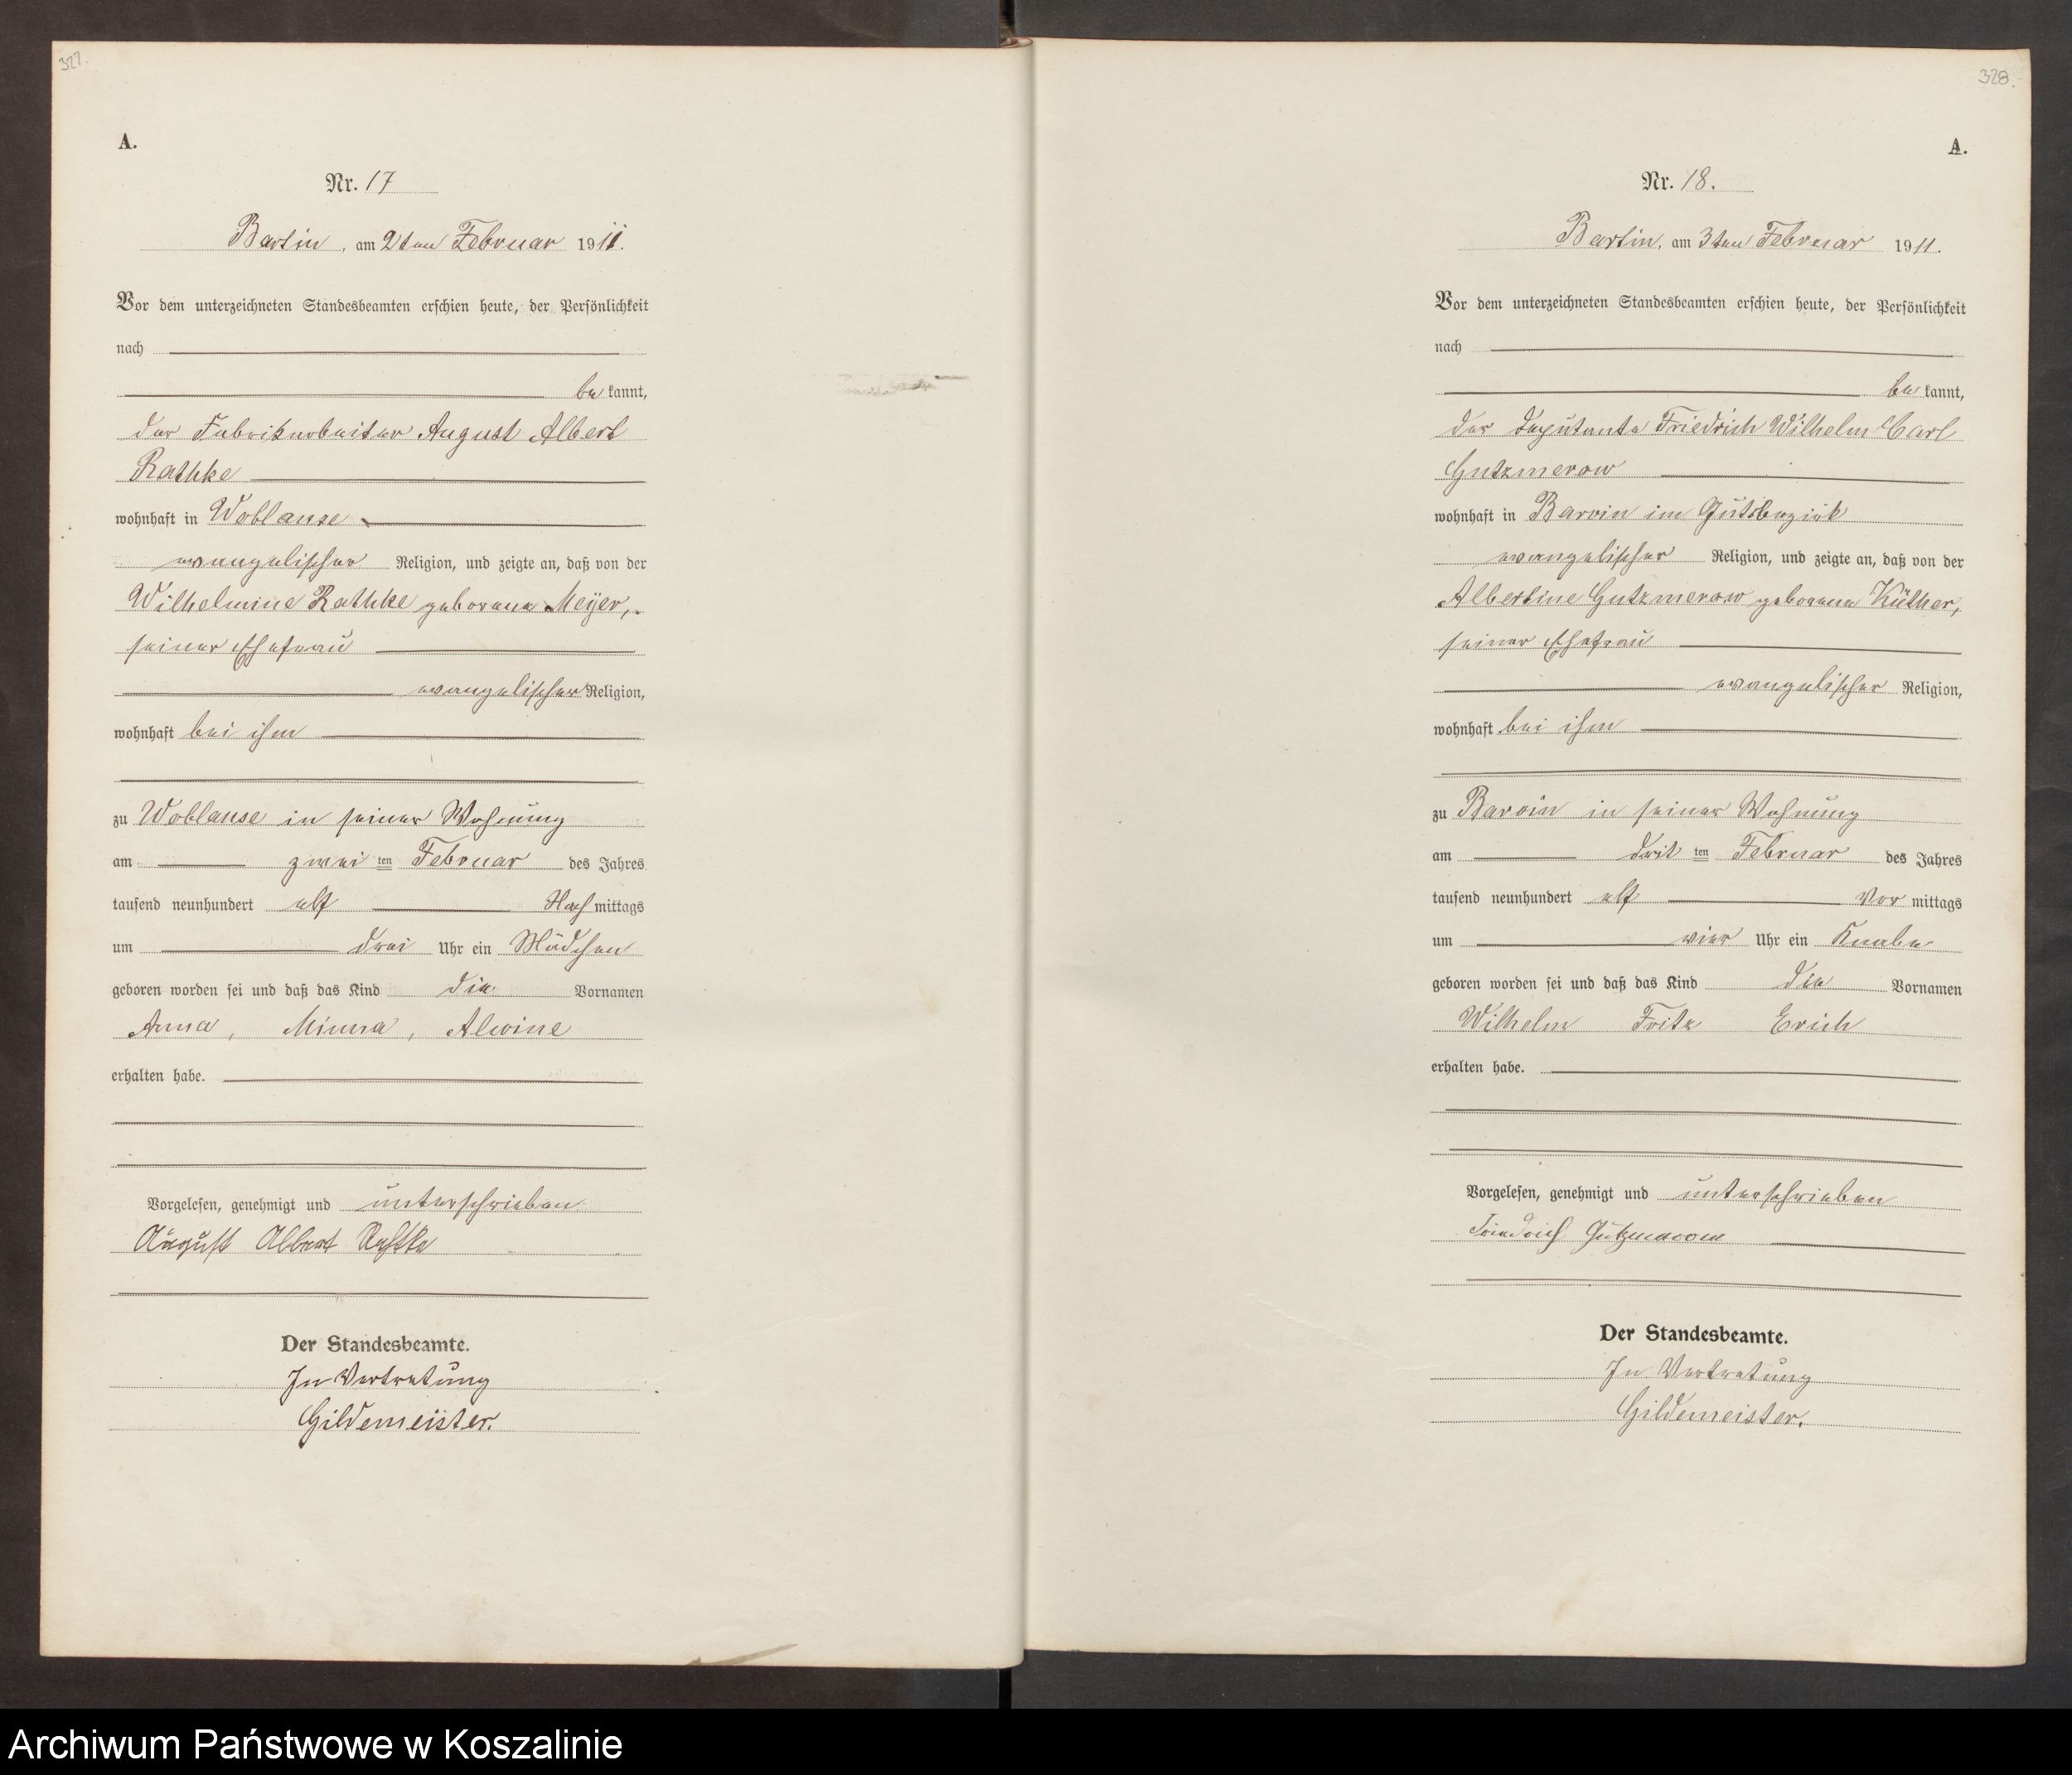 327.
A.
Nr. 17
Bartin, am 2ten Februar 1911.
Vor dem unterzeichneten Standesbeamten erschien heute, der Persönlichkeit
nach
be kannt,
der Fabrikarbeiter August Albert
Rathke
wohnhaft in Woblanse
evangelischer Religion, und zeigte an, daß von der
Wilhelmine Rathke geborene Meyer,
seiner Ehefrau
evangelischer Religion,
wohnhaft bei ihm
zu Woblanse in seiner Wohnung
am zwei ten Februar des Jahres
tausend neunhundert elf Nach mittags
um drei Uhr ein Mädchen
geboren worden sei und daß das Kind die Vornamen
Anna, Minna, Alwine
erhalten habe.
Vorgelesen, genehmigt und unterschrieben
August Albert Rathke
Der Standesbeamte.
In Vertretung
Gildemeister.
328.
A.
Nr. 18.
Bartin, am 3ten Februar 1911.
Vor dem unterzeichneten Standesbeamten erschien heute, der Persönlichkeit
nach
be kannt,
der Deputante Friedrich Wilhelm Carl
Gutzmerow
wohnhaft in Barvin im Gutsbezirk
evangelischer Religion, und zeigte an, daß von der
Albertine Gutzmerow geborene Küther,
seiner Ehefrau
evangelischer Religion,
wohnhaft bei ihm
zu Barvin in seiner Wohnung
am drit ten Februar des Jahres
tausend neunhundert elf Vor mittags
um vier Uhr ein Knabe
geboren worden sei und daß das Kind die Vornamen
Wilhelm Fritz Erich
erhalten habe.
Vorgelesen, genehmigt und unterschrieben
Friedrich Gutzmerow
Der Standesbeamte.
In Vertretung
Gildemeister.
Archiwum Państwowe w Koszalinie